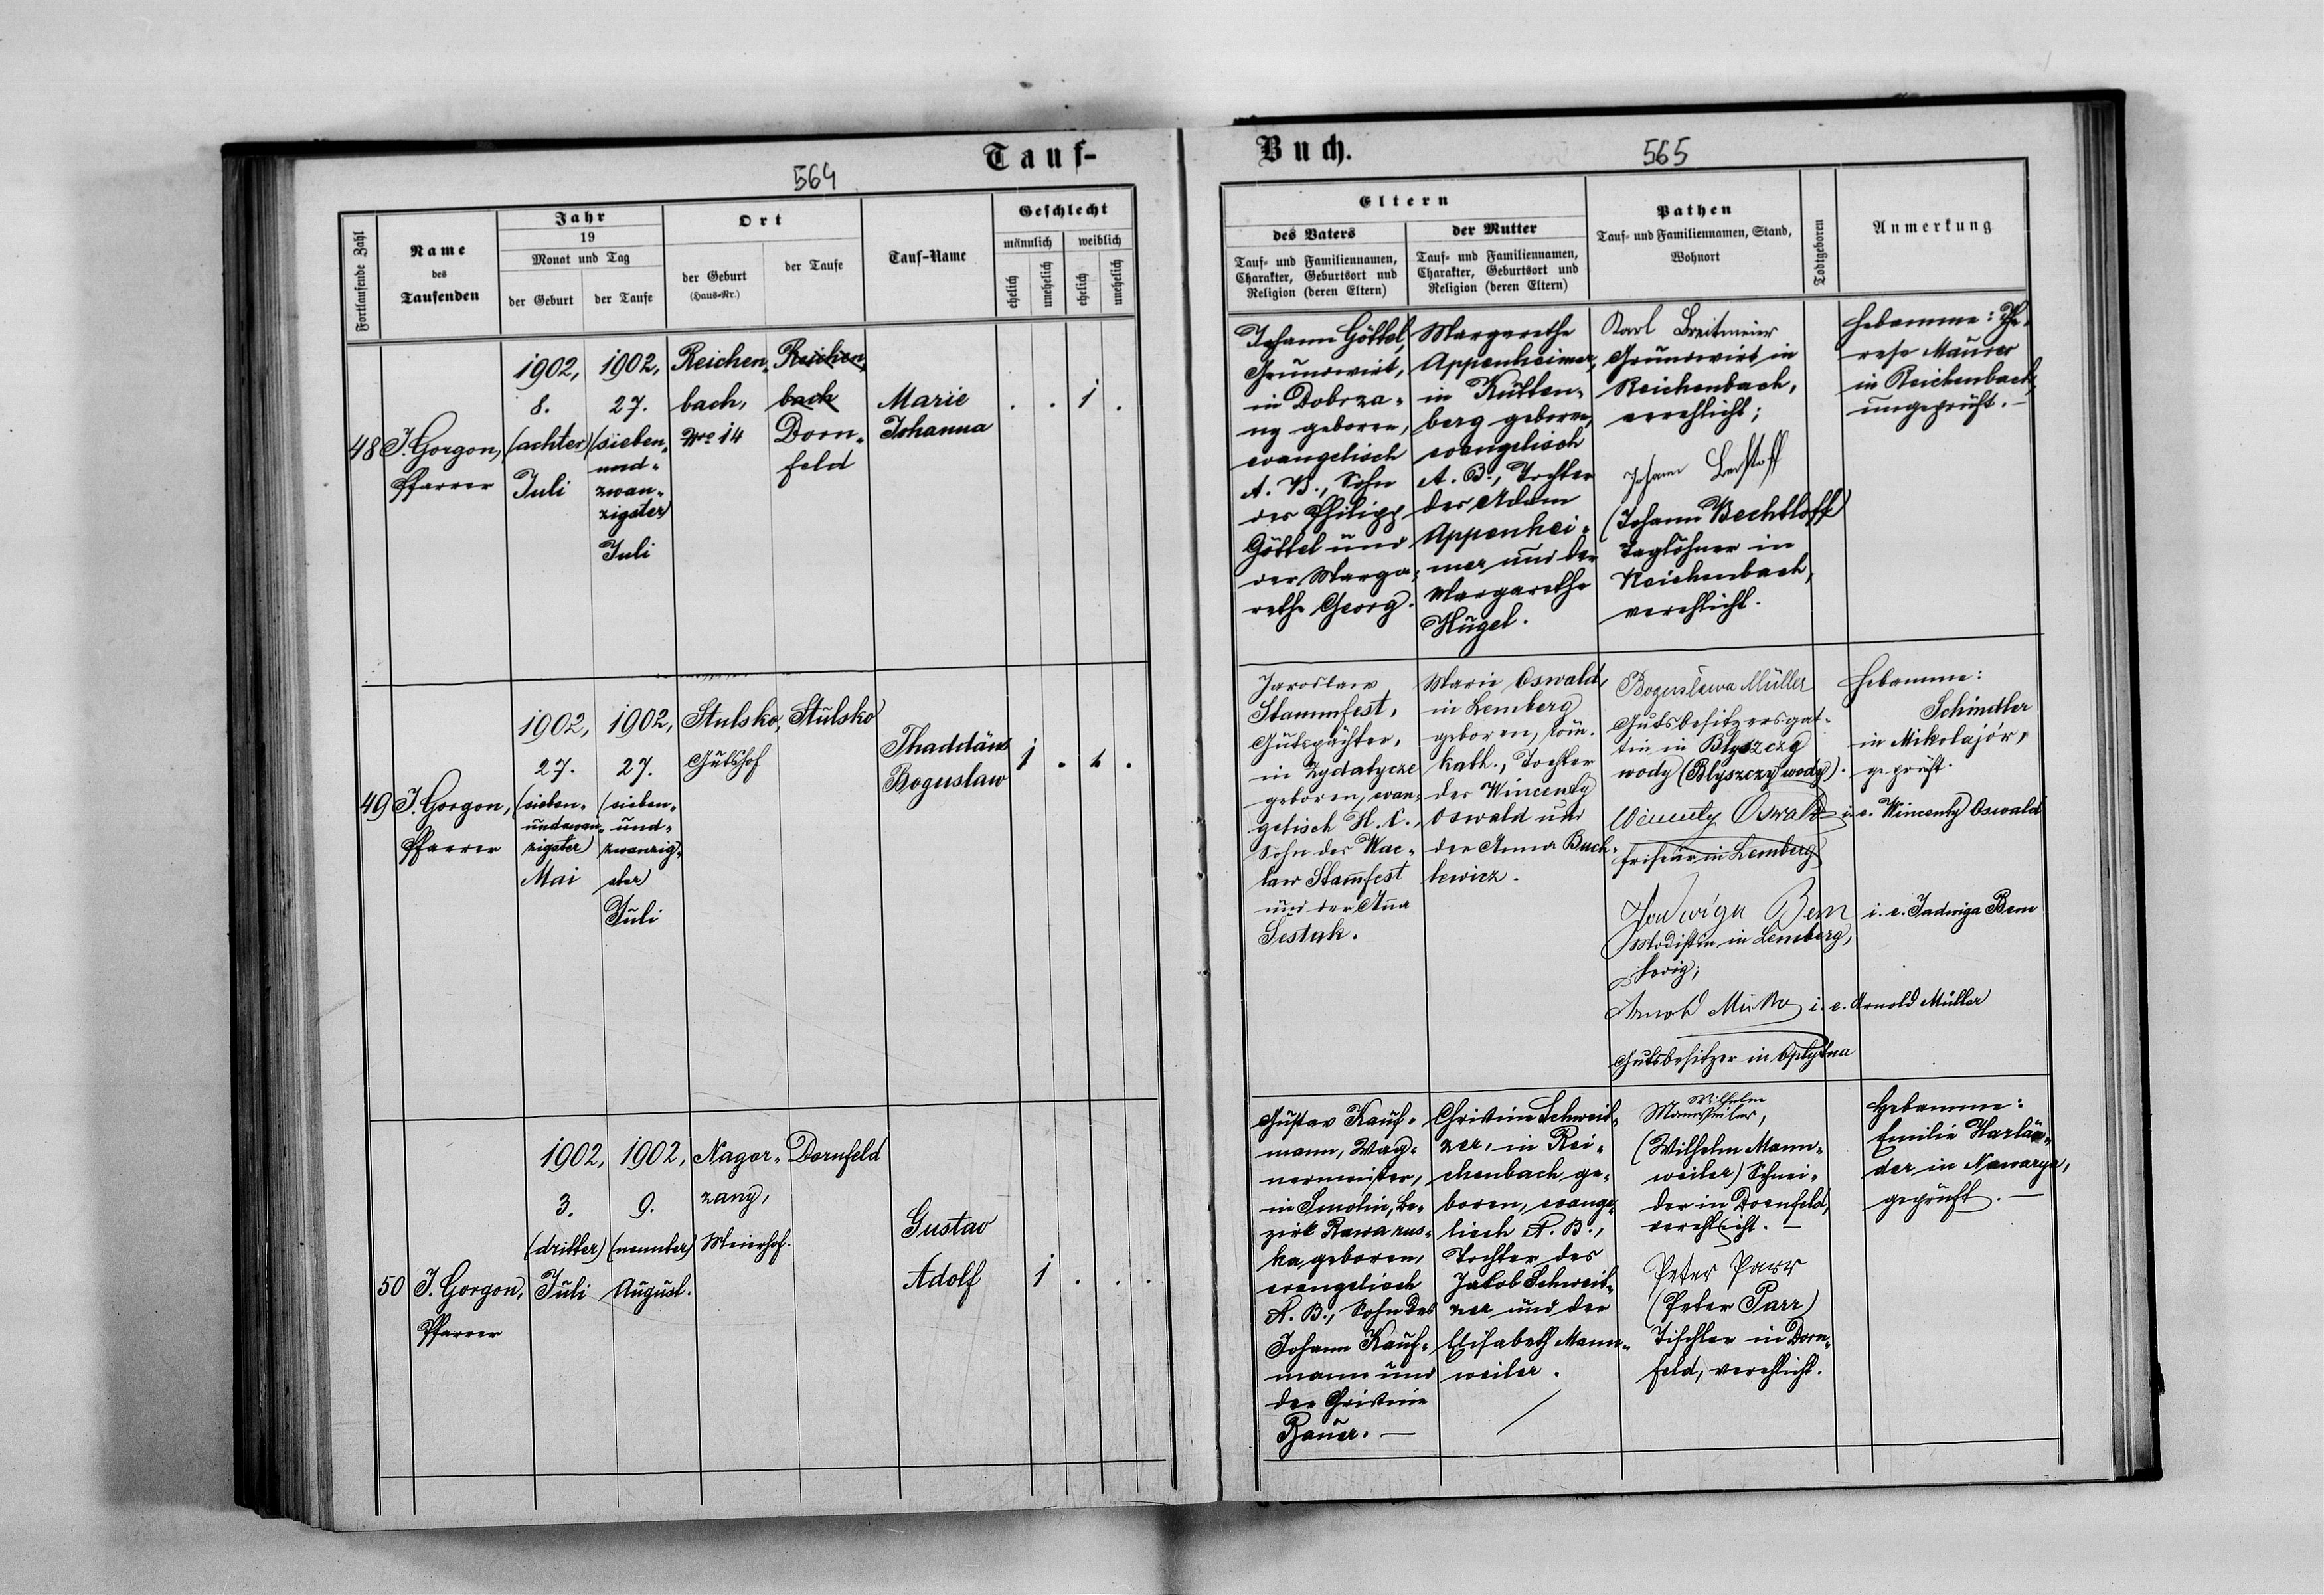 Tauf-
564
Fortlaufende Zahl
Name
des
Taufenden
Jahr
19
Monat und Tag
der Geburt
der Taufe
Ort
der Geburt
(Haus-Nr.)
der Taufe
Tauf-Name
Geschlecht
männlich
weiblich
ehelich
unehelich
ehelich
unehelich
48
J. Gorgon,
Pfarrer
1902,
8.
(achter)
Juli
1902,
27.
(sieben-
und-
zwan-
zigster)
Juli
Reichen-
bach,
Nro 14
Reichen-
bach
Dorn-
feld
Marie
Johanna
. . 1 .
49
J. Gorgon,
Pfarrer
1902,
27.
(sieben-
undzwan-
zigster)
Mai
1902,
27.
(sieben-
und-
zwanzig-
ster)
Juli
Stulsko,
Gutshof
Stulsko
Thaddäus
Boguslaw
1 . . .
50
J. Gorgon,
Pfarrer
1902,
3.
(dritter)
Juli
1902,
9.
(neunter)
August.
Nagor-
zany,
Meierhof.
Dornfeld
Gustav
Adolf
1 . . .
Buch.
565
Eltern
des Vaters
Tauf- und Familiennamen,
Charakter, Geburtsort und
Religion (deren Eltern)
der Mutter
Tauf- und Familiennamen,
Charakter, Geburtsort und
Religion (deren Eltern)
Pathen
Tauf- und Familiennamen, Stand,
Wohnort
Todtgeboren
Anmerkung
Johann Göttel,
Grundwirt,
in Dobrza-
ny geboren,
evangelisch
A. B., Sohn
des Philipp
Göttel und
der Marga-
rethe Georg.
Margarethe
Appenheimer,
in Kutten-
berg geboren,
evangelisch
A. B., Tochter
des Adam
Appenhei-
mer und der
Margarethe
Hügel.
Karl Breitmeier
Grundwirt in
Reichenbach,
verehlicht;
Johann
(Johann Bechtloff)
Taglöhner in
Reichenbach,
verehlicht.
Hebamme: The-
rese Maurer
in Reichenbach,
ungeprüft. —
Jaroslaw
Stammfest,
Gutspächter,
in Zydatycze
geboren, evan-
gelisch H. C.,
Sohn des Wac-
law Stammfest
und der Anna
Sestak.
Marie Oswald,
in Lemberg
geboren, röm.
kath., Tochter
des Wincenty
Oswald und
der Anna Buch-
lewicz.
Bogusława Müller
Gutsbesitzersgat-
tin in Blyszczy
wody (Blyszczy wody).
Wincenty Oswald i. e. Wincenty Oswald
Friseur in Lemberg
Jadwiga Bem i. e. Jadwiga Bem
Modistin in Lemberg,
ledig;
Arnold Müller i. e. Arnold Müller
Gutsbesitzer in Oplytna
Hebamme:
Schindler
in Mikolajów,
geprüft.
Gustav Kauf-
mann, Wag-
nermeister,
in Smolin, Be-
zirk Rawa rus-
ka geboren,
evangelisch
A. B., Sohn des
Johann Kauf-
mann und
der Christine
Bauer. —
Christine Schweit-
zer, in Rei-
chenbach ge-
boren, evange-
lisch A. B.,
Tochter des
Jakob Schweit-
zer und der
Elisabeth Mann-
weiler.
Wilhelm
Mannweiler,
(Wilhelm Mann-
weiler) Schnei-
der in Dornfeld,
verehlicht. —
Peter Parr
(Peter Parr)
Tischler in Dorn-
feld, verehlicht.
Hebamme:
Emilie Harlän-
der in Nawarya,
geprüft. —